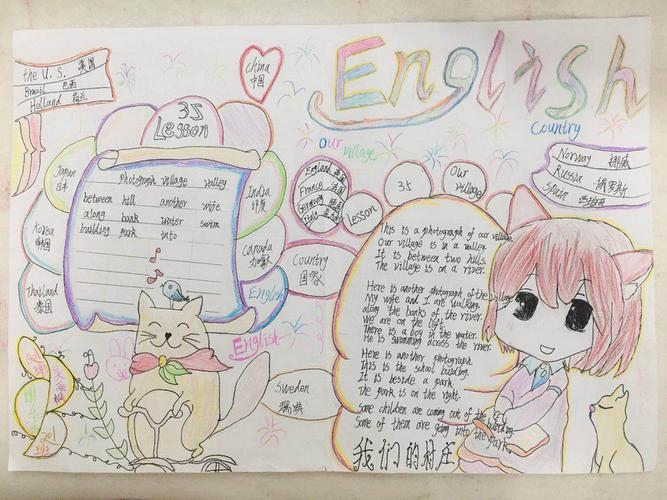 English
the U.S. 美国
Brazil 巴西
Holland 荷兰
China
中国
35
Lesson
Our village
Country
Norway 挪威
Russia 俄罗斯
Spain 西班牙
Japan
日本
Korea
韩国
Thailand
泰国
photograph village valley
between hill another wife
along bank water swim
building park into
India
印度
Canada
加拿大
English
English
England 英国
France 法国
Germany 德国
Lesson
35
Our
village
Country
国家
Sweden
瑞典
This is a photograph of our village.
Our village is in a valley.
It is between two hills.
The village is on a river.
Here is another photograph of the village.
My wife and I are walking
along the banks of the river.
We are on the left.
There is a boy in the water.
He is swimming across the river.
Here is another photograph.
This is the school building.
It is beside a park.
The park is on the right.
Some children are coming out of the building.
Some of them are going into the park.
我们的村庄